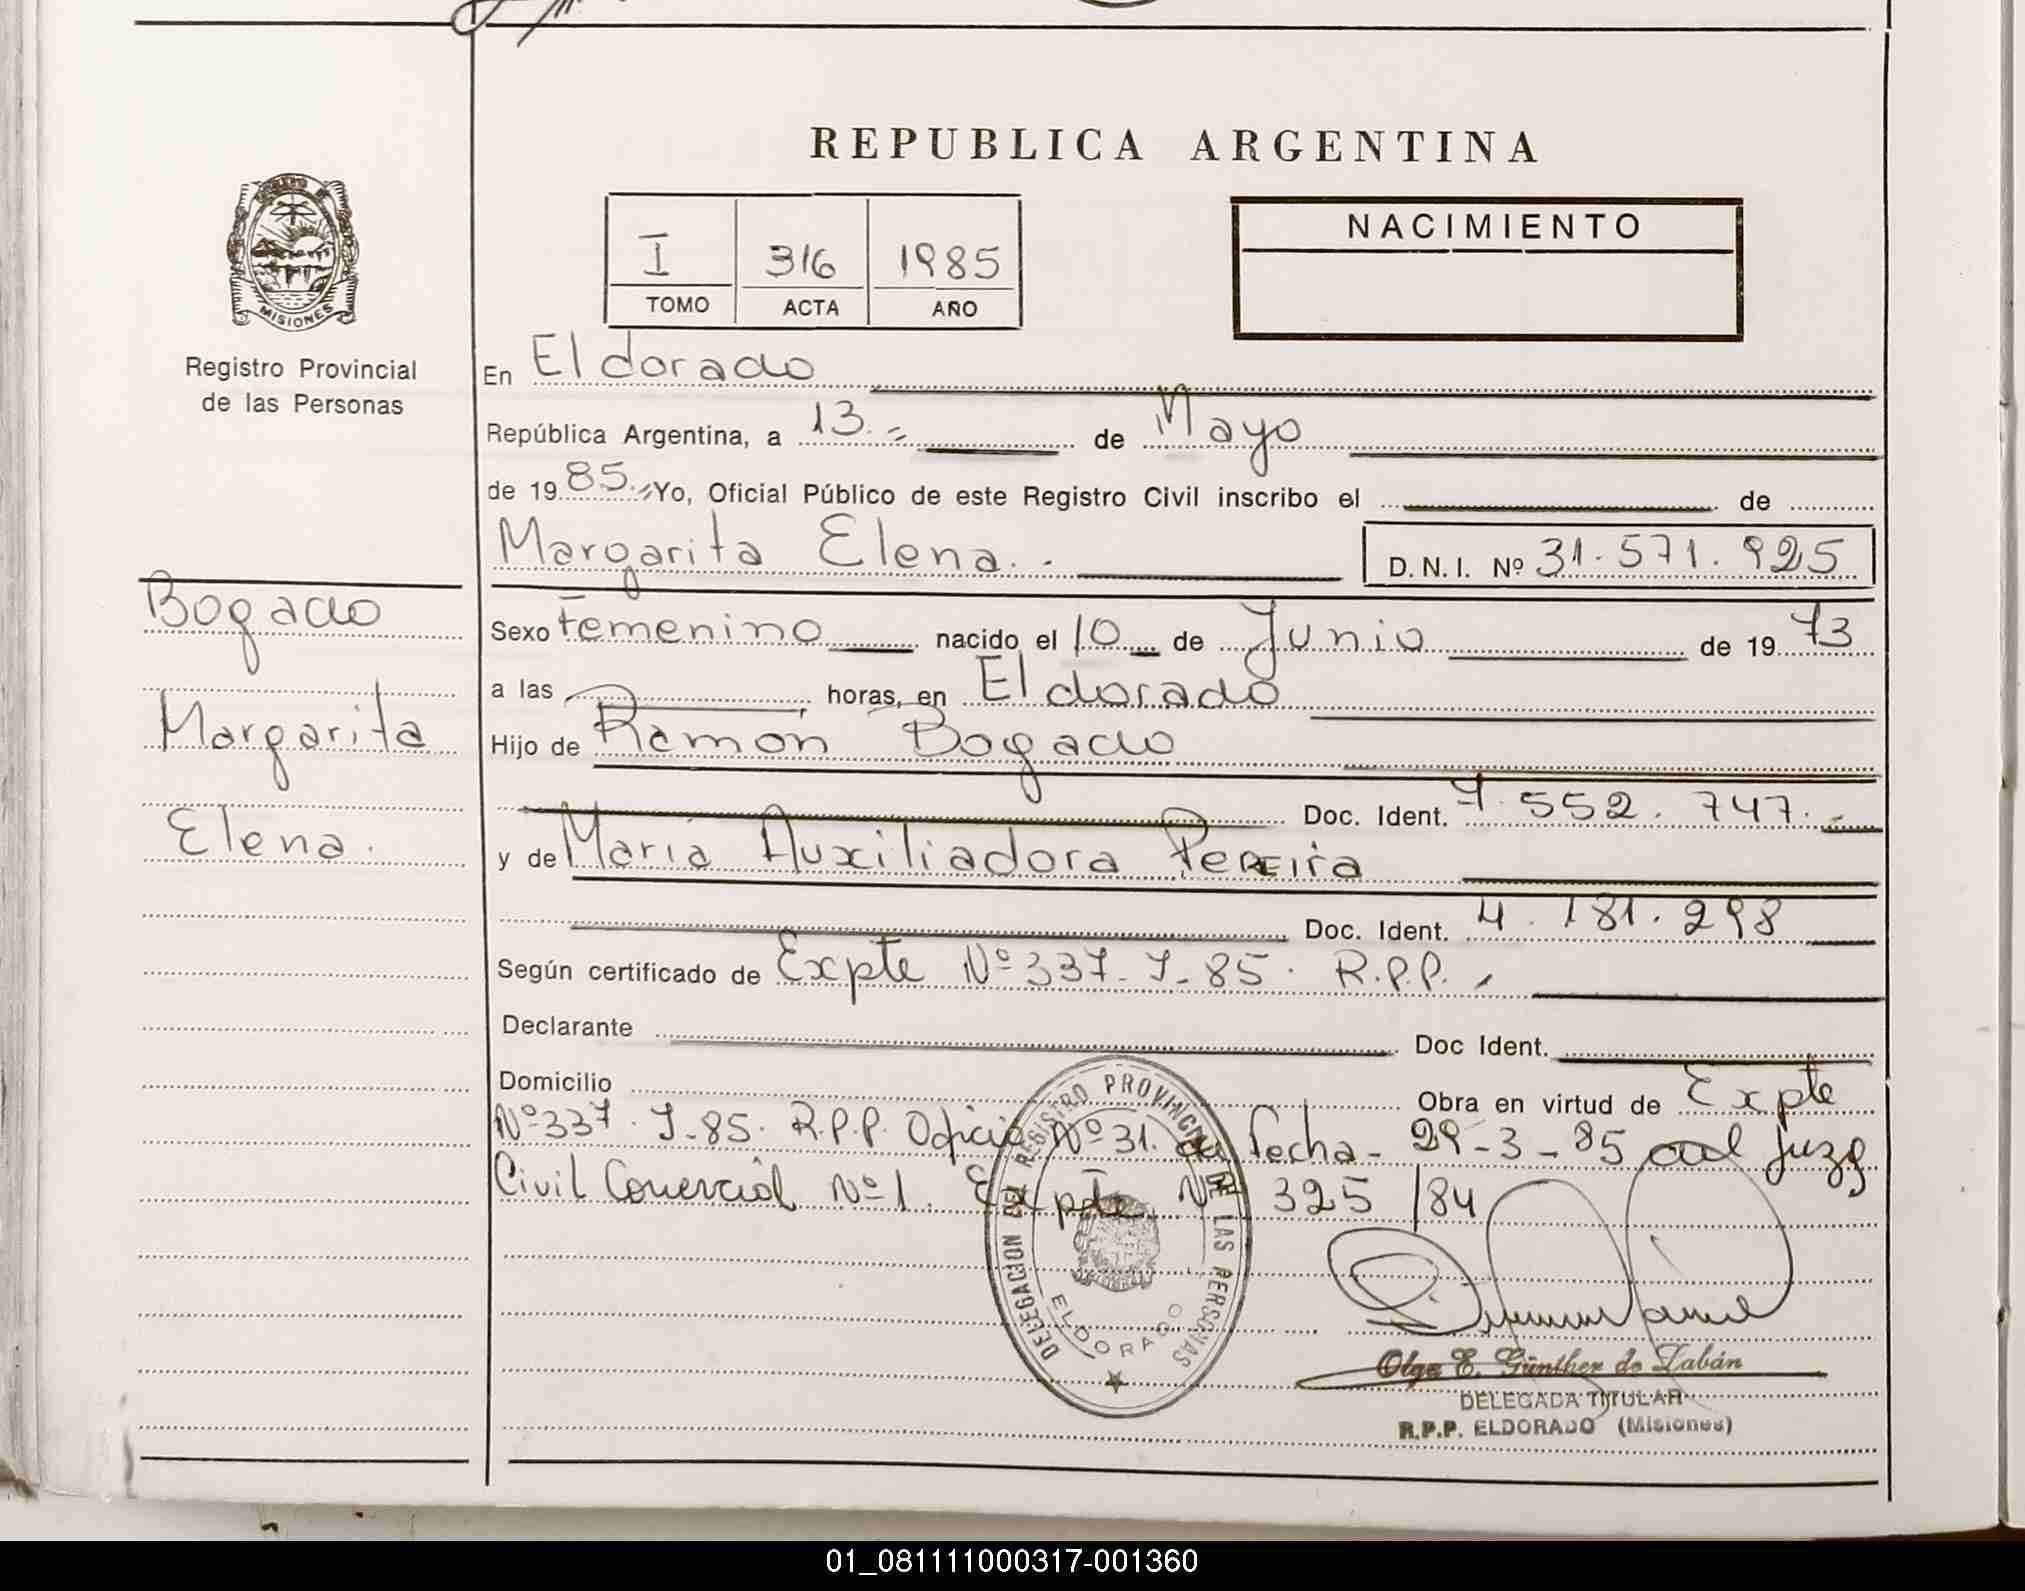 REPUBLICA ARGENTINA
MISIONES
Registro Provincial
de las Personas
I 316 1985
TOMO ACTA AÑO
NACIMIENTO
En Eldorado
República Argentina, a 13.- de Mayo
de 1985.- Yo, Oficial Público de este Registro Civil inscribo el de
Margarita Elena.- D.N.I. Nº 31.571.925
Bogado
Margarita
Elena.
Sexo Femenino nacido el 10 de Junio de 1973
a las horas, en Eldorado
Hijo de Ramón Bogado
Doc. Ident. 7.552.747.-
y de María Auxiliadora Pereira
Doc. Ident. 4.181.298
Según certificado de Expte Nº 337-J-85. R.P.P.
Declarante Doc Ident.
Domicilio Obra en virtud de Expte
Nº 337-J-85. R.P.P. Oficio Nº 31. de fecha - 29-3-85 del Juzg
Civil Comercial Nº 1. Expte Nº 325/84
DELEGACION DEL REGISTRO PROVINCIAL DE LAS PERSONAS
ELDORADO
Olga E. Günther de Labán
DELEGADA TITULAR
R.P.P. ELDORADO (Misiones)
01_081111000317-001360